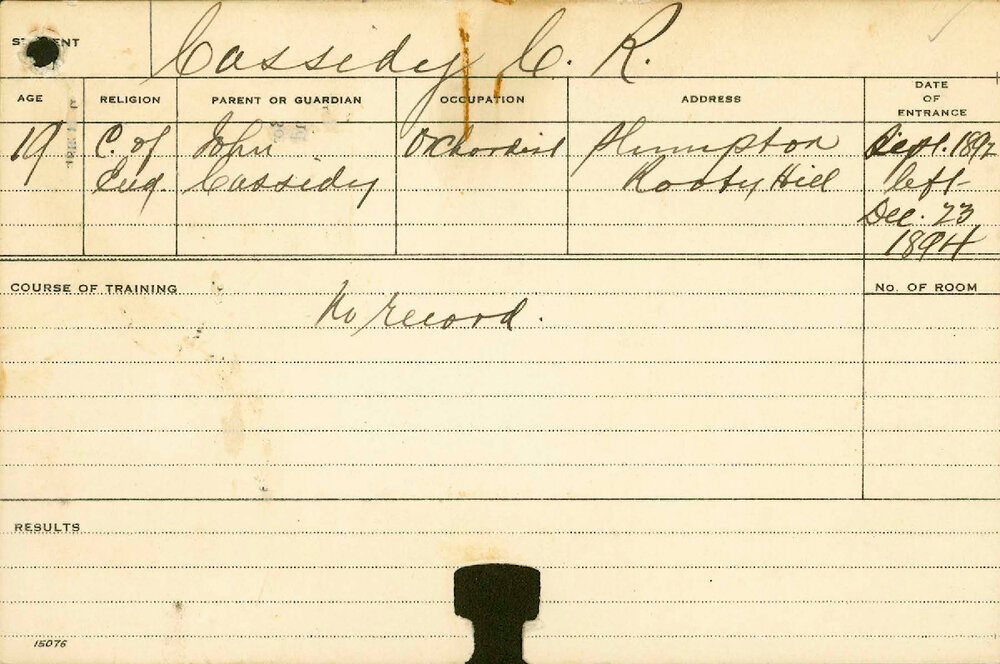 STUDENT Cassidy, C. R.
AGE RELIGION PARENT OR GUARDIAN OCCUPATION ADDRESS DATE OF ENTRANCE
19 C. of John Orchardist Plumpton Sept. 1892
Eng. Cassidy Rooty Hill left
Dec. 23
1894
COURSE OF TRAINING No. OF ROOM
No record.
RESULTS
15076